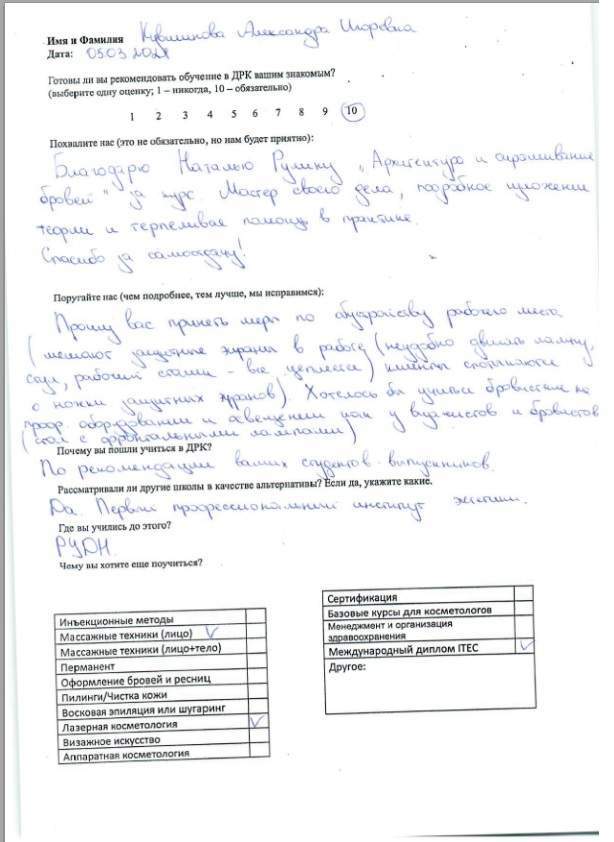 Имя и Фамилия Кувшинова Александра Игоревна
Дата: 05.03.2021
Готовы ли вы рекомендовать обучение в ДРК вашим знакомым?
(выберите одну оценку; 1 – никогда, 10 – обязательно)
1 2 3 4 5 6 7 8 9 10
Похвалите нас (это не обязательно, но нам будет приятно):
Благодарю Наталью Рулину „Архитектура и окрашивание
бровей" за курс. Мастер своего дела, подробное изложение
теории и терпеливая помощь в практике.
Спасибо за самоотдачу!
Поругайте нас (чем подробнее, тем лучше, мы исправимся):
Прошу вас принять меры по обустройству рабочего места
(мешают защитные экраны в работе (неудобно двигать лампу,
стул, рабочий столик - все цепляется) клиенты спотыкаются
о ножки защитных экранов). Хотелось бы учиться бровистам на
проф. оборудовании и освещении как у визажистов и бровистов
(стол с фронтальными лампами)
Почему вы пошли учиться в ДРК?
По рекомендации ваших студентов - выпускников.
Рассматривали ли другие школы в качестве альтернативы? Если да, укажите какие.
Да. Первый профессиональный институт эстетики.
Где вы учились до этого?
РУДН.
Чему вы хотите еще поучиться?
Инъекционные методы
Массажные техники (лицо)
Массажные техники (лицо+тело)
Перманент
Оформление бровей и ресниц
Пилинги/Чистка кожи
Восковая эпиляция или шугаринг
Лазерная косметология
Визажное искусство
Аппаратная косметология
Сертификация
Базовые курсы для косметологов
Менеджмент и организация
здравоохранения
Международный диплом ITEC
Другое: